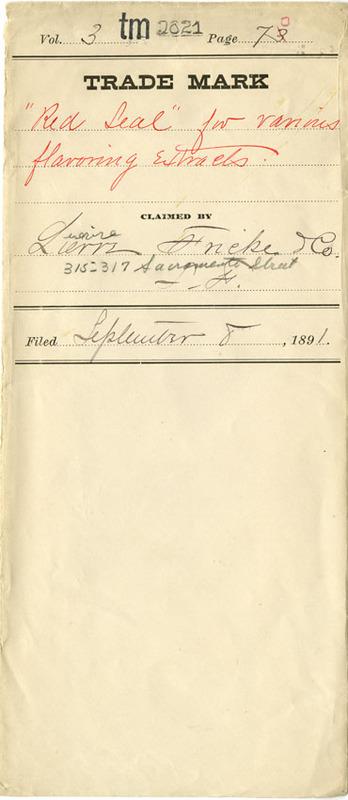 Vol. 3 tm 2021 Page 78
TRADE MARK
"Red Seal" for various
flavoring extracts.
CLAIMED BY
Fricke & Co.
315-317 Sacramento Street
S. F.
Filed September 8, 1891.